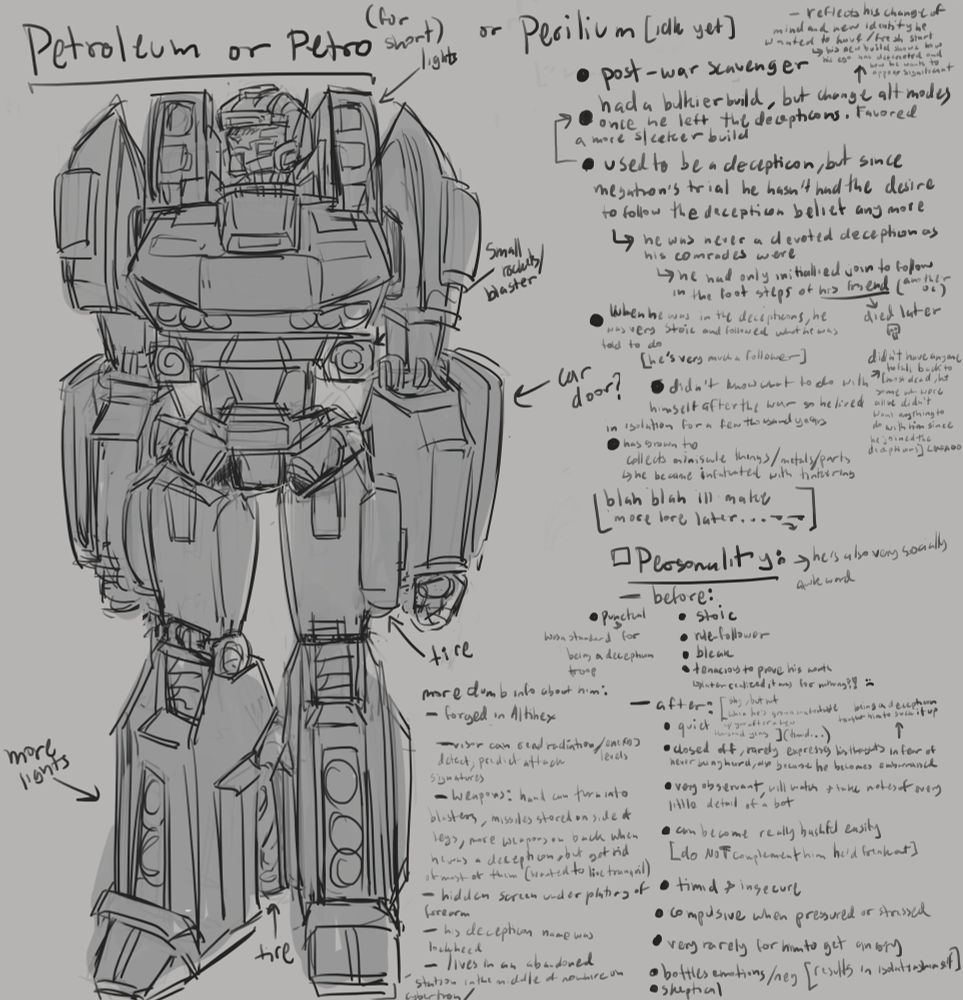 Petroleum or Petro (for short) or Perilium [idk yet]
lights
- reflects his change of
mind and new identity he
wanted to have / fresh start
↳ his new build shows how
his ego has deteriorated and
how he wants to
appear significant
• post-war scavenger
• had a bulkier build, but change alt modes
once he left the decepticons. Favored
a more sleeker build
• used to be a decepticon, but since
megatron's trial he hasn't had the desire
to follow the decepticon belief any more
↳ he was never a devoted decepticon as
his comrades were
↳ he had only initiallied join to follow
in the foot steps of his friend (another oc)
died later
small
rockets/
blaster
• When he was in the decepticons, he
was very stoic and followed what he was
told to do
[he's very much a follower]
didn't have anyone
to fall back to
[most dead, but
some who were
alive didn't
want anything to
do with him since
he joined the
decepticons]
car
door?
• didn't know what to do with
himself after the war so he lived
in isolation for a few thousand years
• has grown to
collects miniscule things/metals/parts
↳ he became infatuated with tinkering
[blah blah ill make
more lore later...]
Personality:
→ he's also very socially
awkward
- before:
• punctual
was standard for
being a decepticon
• stoic
• rule follower
• bleak
• tenacious to prove his worth
tire
more dumb info about him:
- forged in Altihex
- visor can read radiation/energy levels
detect, predict attack
signatures
- weapons: hand can turn into
blasters, missiles stored on side of
legs, more weapons on back when
he was a decepticon, but got rid
of most of them (wanted to live tranquil)
- hidden screen under plating of
forearm
- his decepticon name was
- lives in an abandoned
station in the middle of nowhere on
cybertron/
more
lights
tire
- after:
being a decepticon
taught him to suck it up
• quiet
• closed off, rarely expresses his thoughts in fear of
never being heard, also because he becomes embarrassed
• very observant, will watch + take notes of every
little detail of a bot
• can become really bashful easily
[do NOT complement him he'd freak out]
• timid + insecure
• compulsive when pressured or stressed
• very rarely for him to get angry
• bottles emotions/neg [results in isolating himself]
• skeptical